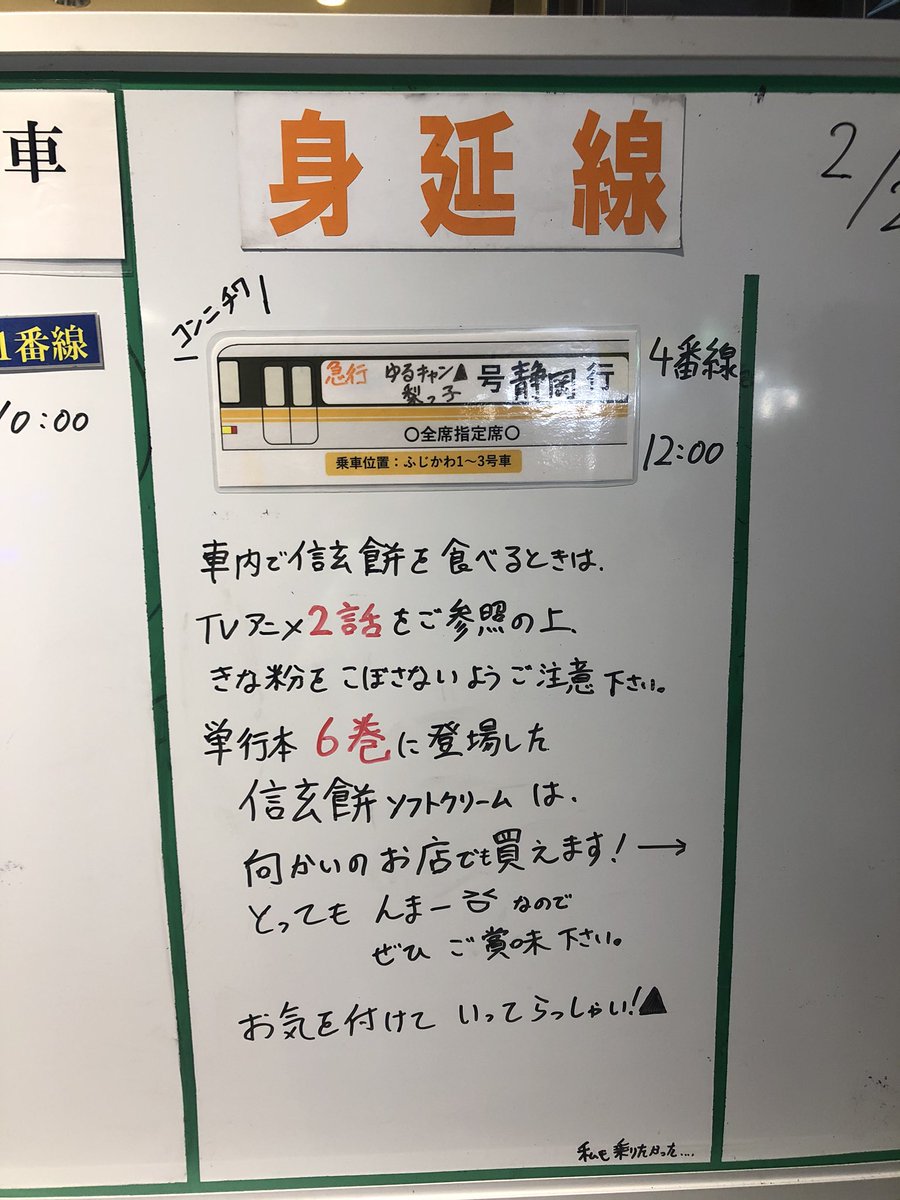 車
身延線
2/2
コンニチワー
急行 ゆるキャン▲梨っ子 号 静岡 行
〇全席指定席〇
乗車位置：ふじかわ1～3号車
4番線
12:00
1番線
10:00
車内で信玄餅を食べるときは、
TVアニメ2話をご参照の上、
きな粉をこぼさないようご注意下さい。
単行本6巻に登場した
信玄餅ソフトクリームは、
向かいのお店でも買えます!→
とっても んまー なので
ぜひ ご賞味下さい。
お気を付けて いってらっしゃい!▲
私も乗りたかった....